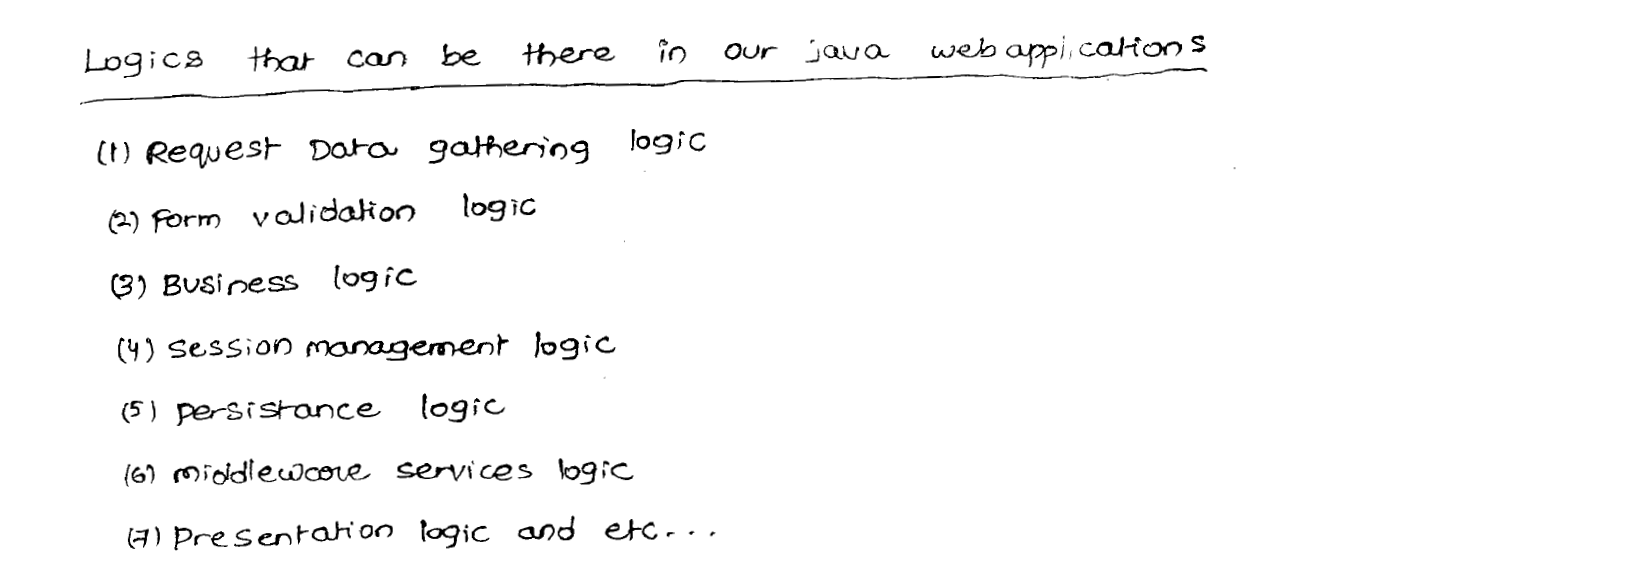 Logics that can be there in our java web applications
(1) Request Data gathering logic
(2) Form validation logic
(3) Business logic
(4) session management logic
(5) persistance logic
(6) middleware services logic
(7) Presentation logic and etc....